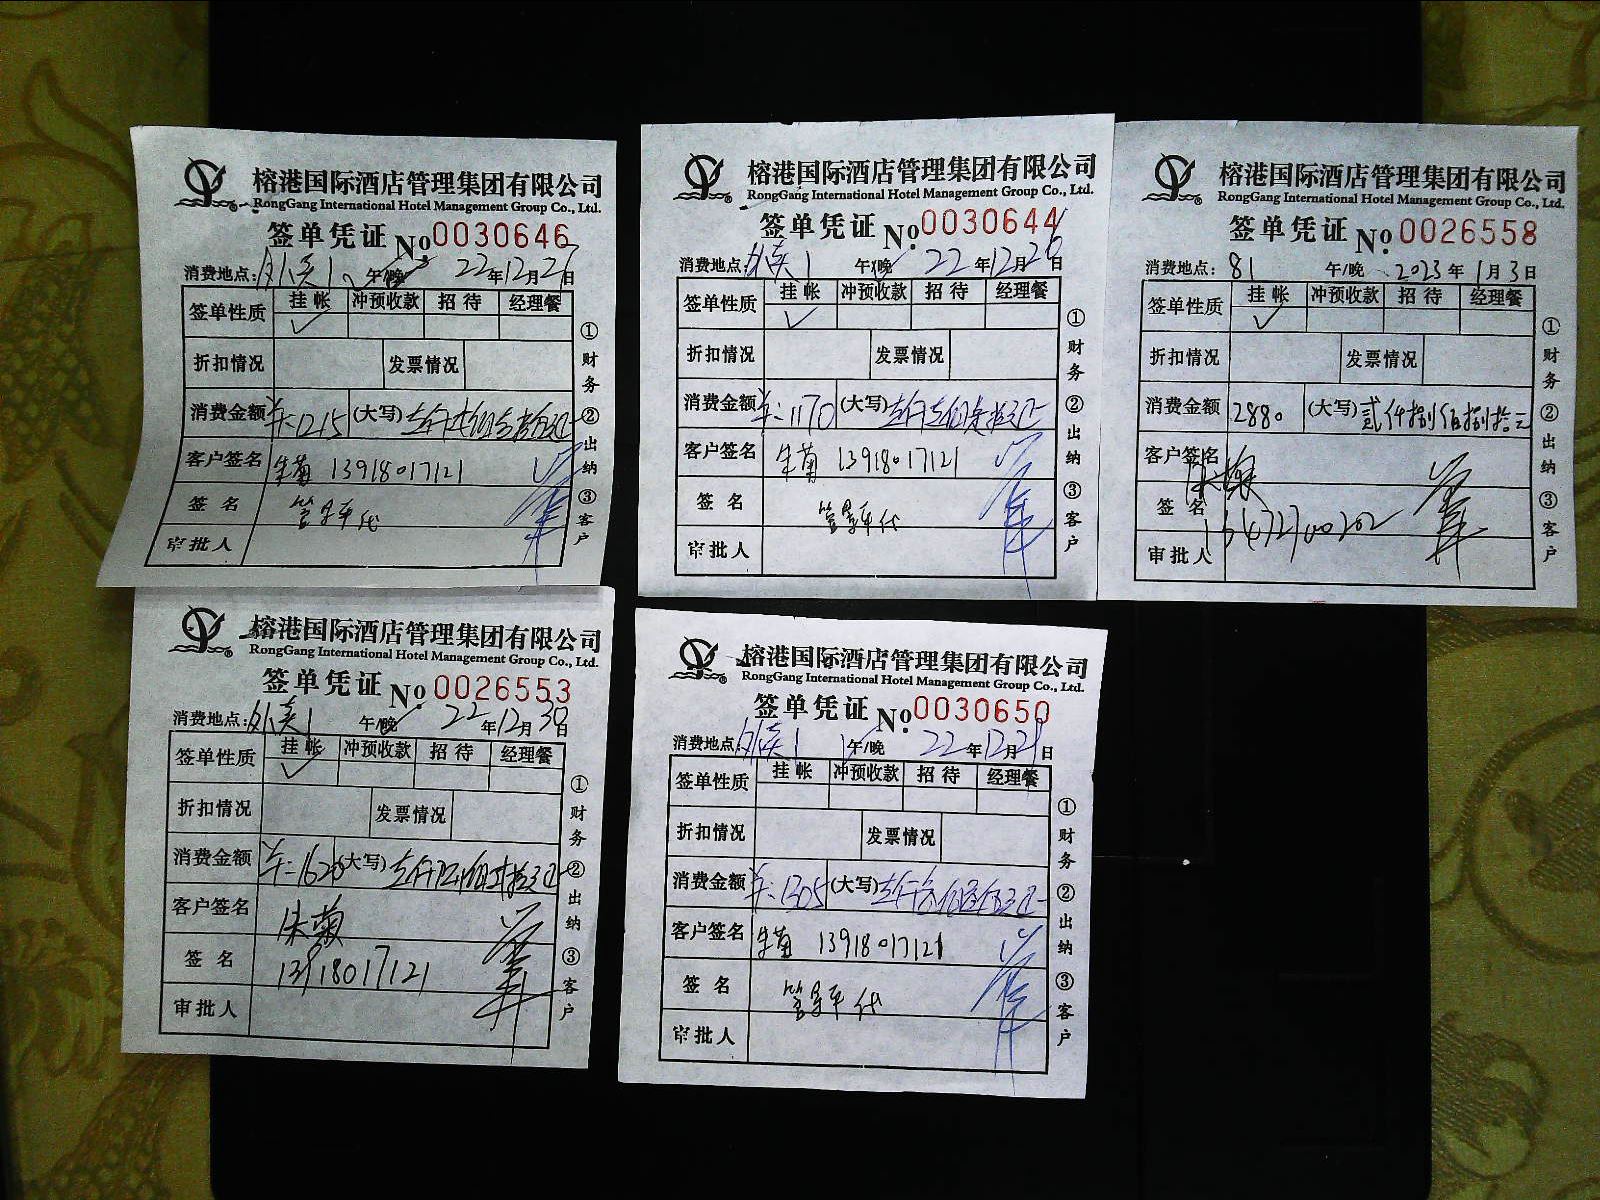 榕港国际酒店管理集团有限公司
RongGang International Hotel Management Group Co., Ltd.
签单凭证 No.0030646
消费地点: 1 午/晚 22年12月27日
签单性质 挂帐 冲预收款 招待 经理餐
✓
折扣情况 发票情况
消费金额 1215 (大写)
客户签名 朱菊 13918017121
签名 代
审批人
①财务 ②出纳 ③客户
榕港国际酒店管理集团有限公司
RongGang International Hotel Management Group Co., Ltd.
签单凭证 No.0030644
消费地点: 1 午/晚 22年12月26日
签单性质 挂帐 冲预收款 招待 经理餐
✓
折扣情况 发票情况
消费金额 1170 (大写)
客户签名 朱菊 13918017121
签名 代
审批人
①财务 ②出纳 ③客户
榕港国际酒店管理集团有限公司
RongGang International Hotel Management Group Co., Ltd.
签单凭证 No.0026558
消费地点: 81 午/晚 2023年1月3日
签单性质 挂帐 冲预收款 招待 经理餐
✓
折扣情况 发票情况
消费金额 2880 (大写) 贰仟捌佰捌拾元
客户签名
签名
审批人
①财务 ②出纳 ③客户
榕港国际酒店管理集团有限公司
RongGang International Hotel Management Group Co., Ltd.
签单凭证 No.0026553
消费地点: 1 午/晚 22年12月30日
签单性质 挂帐 冲预收款 招待 经理餐
✓
折扣情况 发票情况
消费金额 1620 (大写)
客户签名 朱菊
签名 13918017121
审批人
①财务 ②出纳 ③客户
榕港国际酒店管理集团有限公司
RongGang International Hotel Management Group Co., Ltd.
签单凭证 No.0030650
消费地点: 1 午/晚 22年12月29日
签单性质 挂帐 冲预收款 招待 经理餐
折扣情况 发票情况
消费金额 1305 (大写)
客户签名 朱菊 13918017121
签名 代
审批人
①财务 ②出纳 ③客户